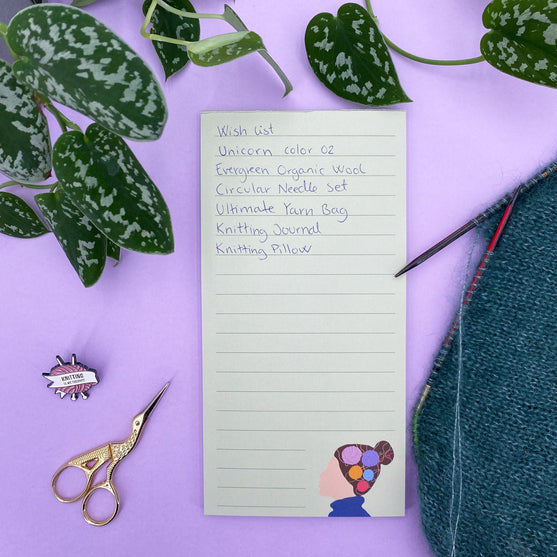 Wish List
Unicorn color 02
Evergreen Organic Wool
Circular Needle Set
Ultimate Yarn Bag
Knitting Journal
Knitting Pillow
KNITTING
IS MY THERAPY